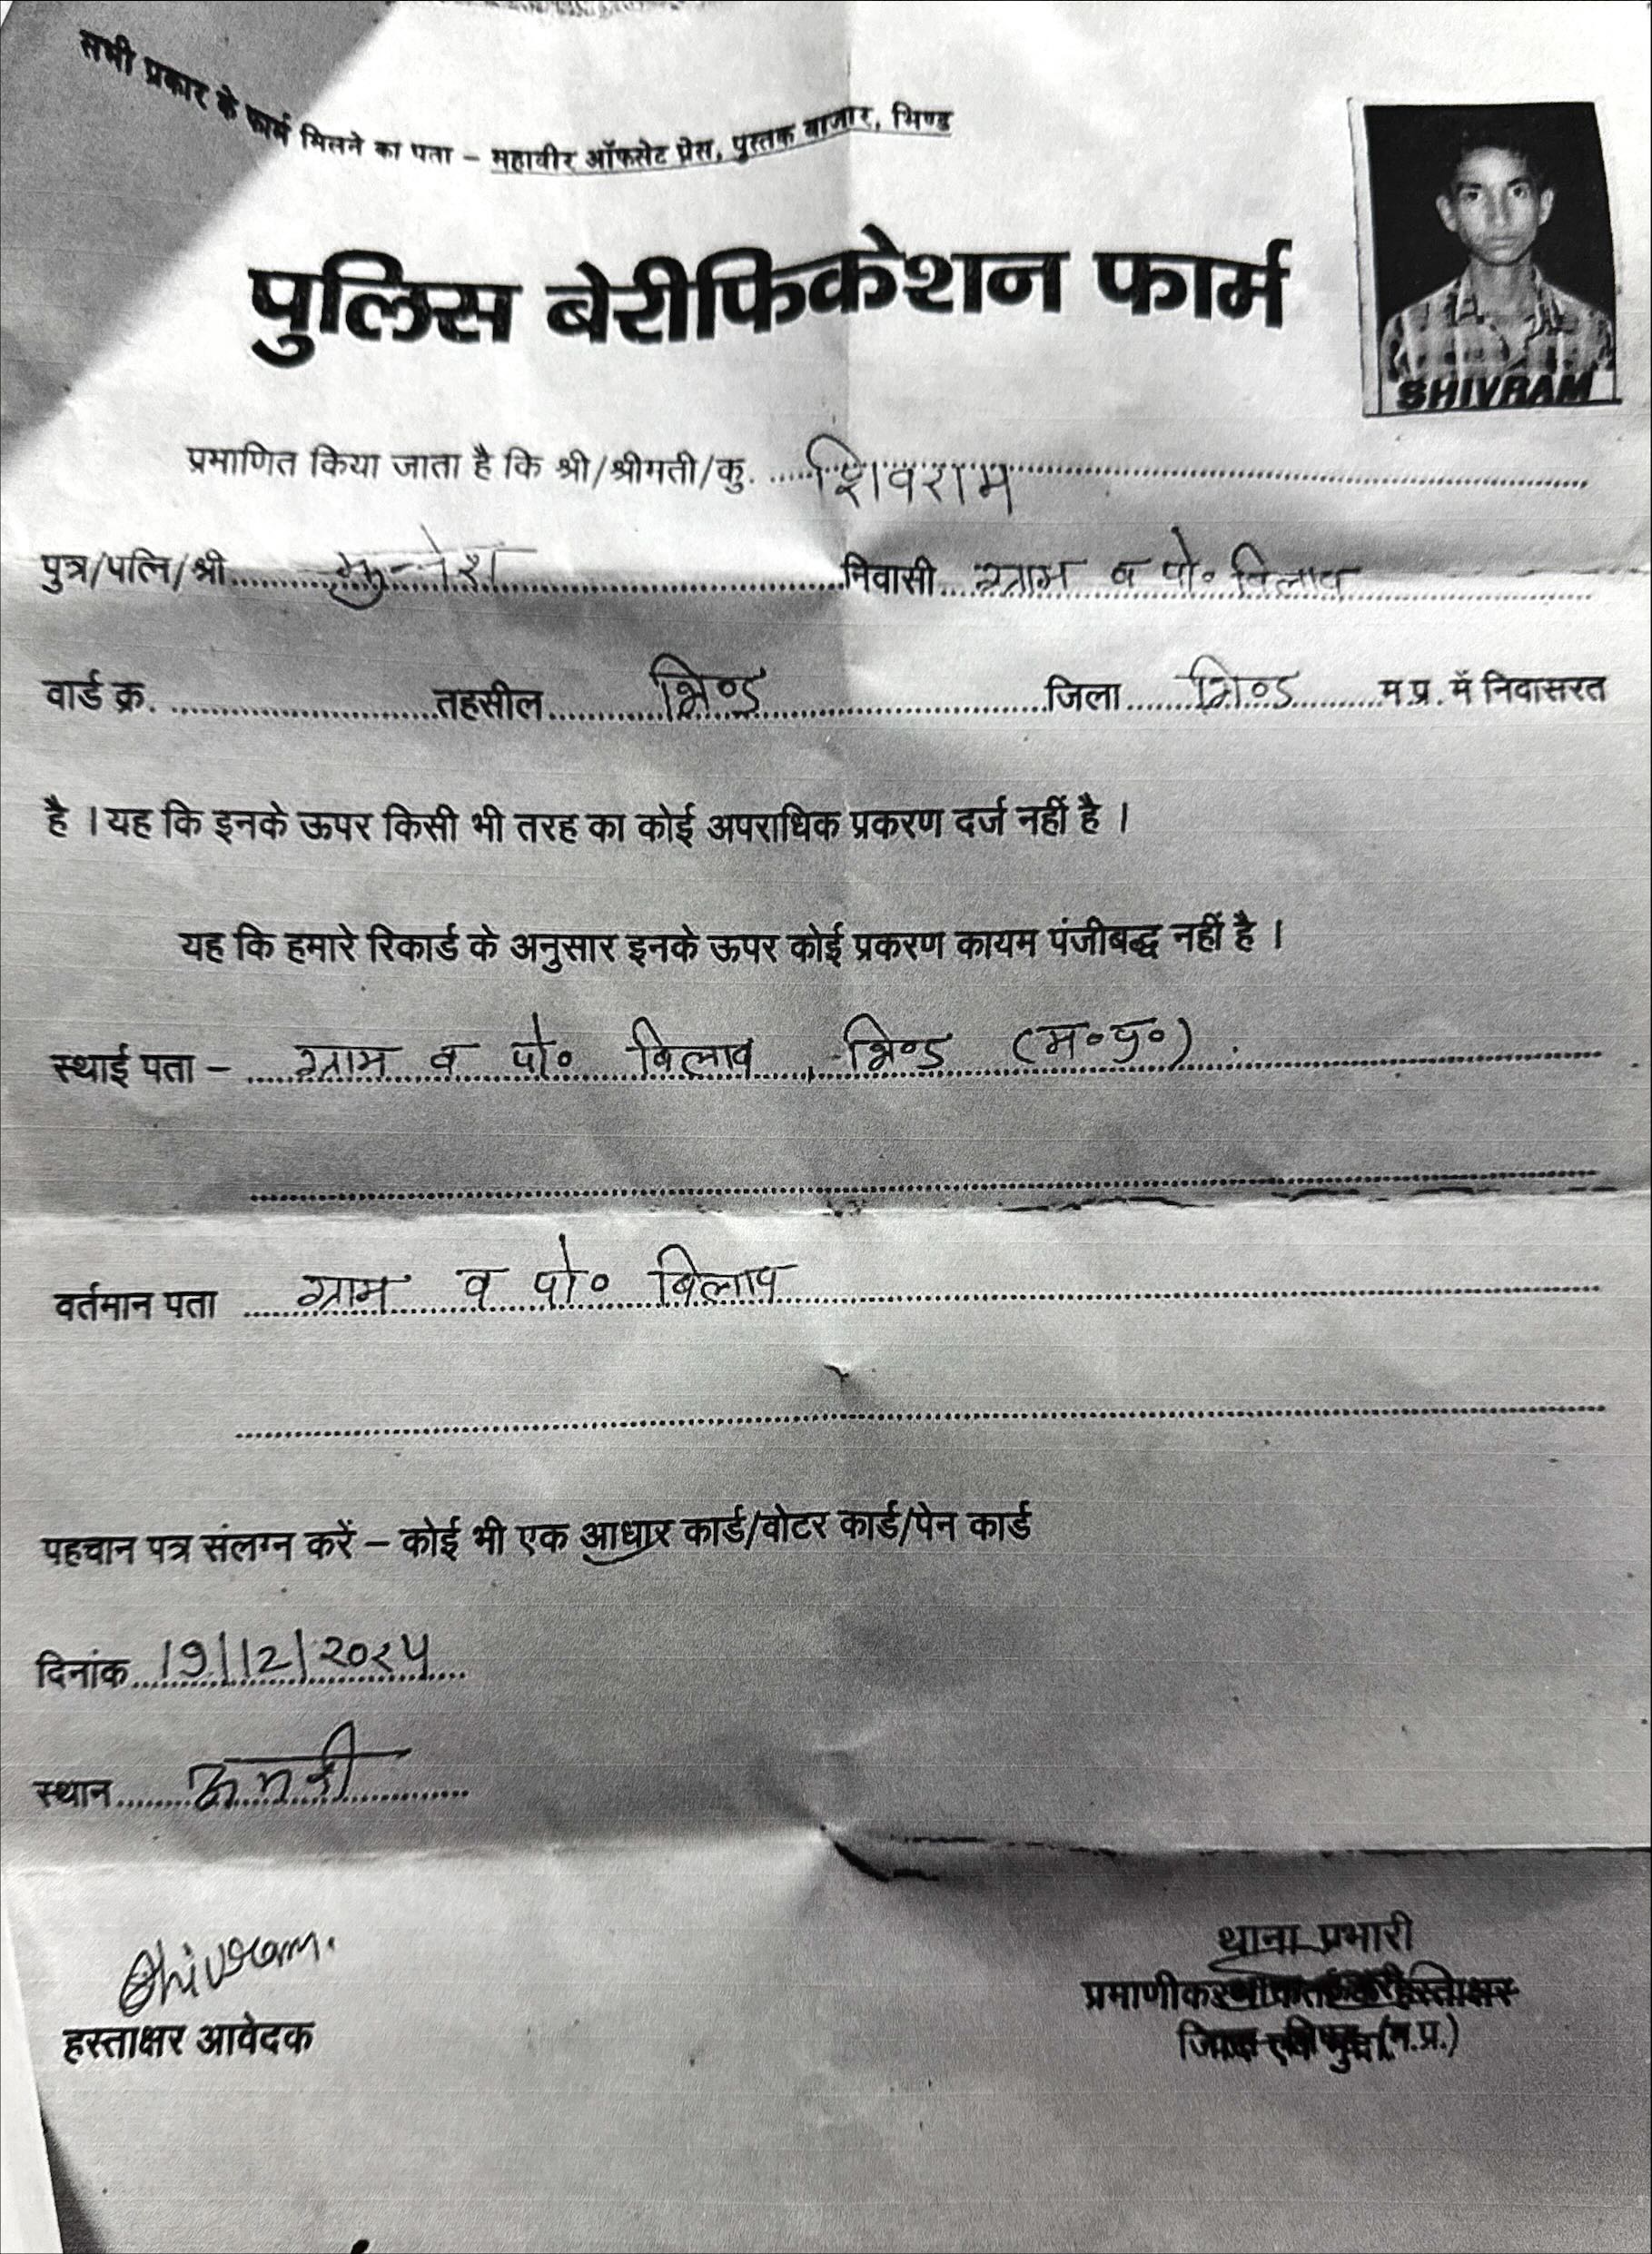 सभी प्रकार के फार्म मिलने का पता – महावीर ऑफसेट प्रेस, पुस्तक बाजार, भिण्ड
पुलिस बेरीफिकेशन फार्म
SHIVRAM
प्रमाणित किया जाता है कि श्री/श्रीमती/कु. शिवराम
पुत्र/पत्नि/श्री निवासी ग्राम व पो॰ बिलाव
वार्ड क्र. तहसील भिण्ड जिला भिण्ड म.प्र. में निवासरत
है । यह कि इनके ऊपर किसी भी तरह का कोई अपराधिक प्रकरण दर्ज नहीं है ।
यह कि हमारे रिकार्ड के अनुसार इनके ऊपर कोई प्रकरण कायम पंजीबद्ध नहीं है ।
स्थाई पता – ग्राम व पो॰ बिलाव, भिण्ड (म॰प्र॰)
वर्तमान पता ग्राम व पो॰ बिलाव
पहचान पत्र संलग्न करें – कोई भी एक आधार कार्ड/वोटर कार्ड/पेन कार्ड
दिनांक 19/12/२०२५
स्थान ऊमरी
Shivram.
हस्ताक्षर आवेदक
थाना प्रभारी
(म.प्र.)